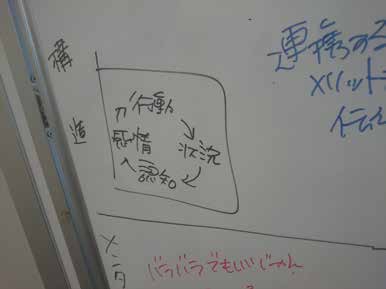 構造
行動
感情 状況
認知
連携する
メリット
メンタ
バラバラでもいいじゃん